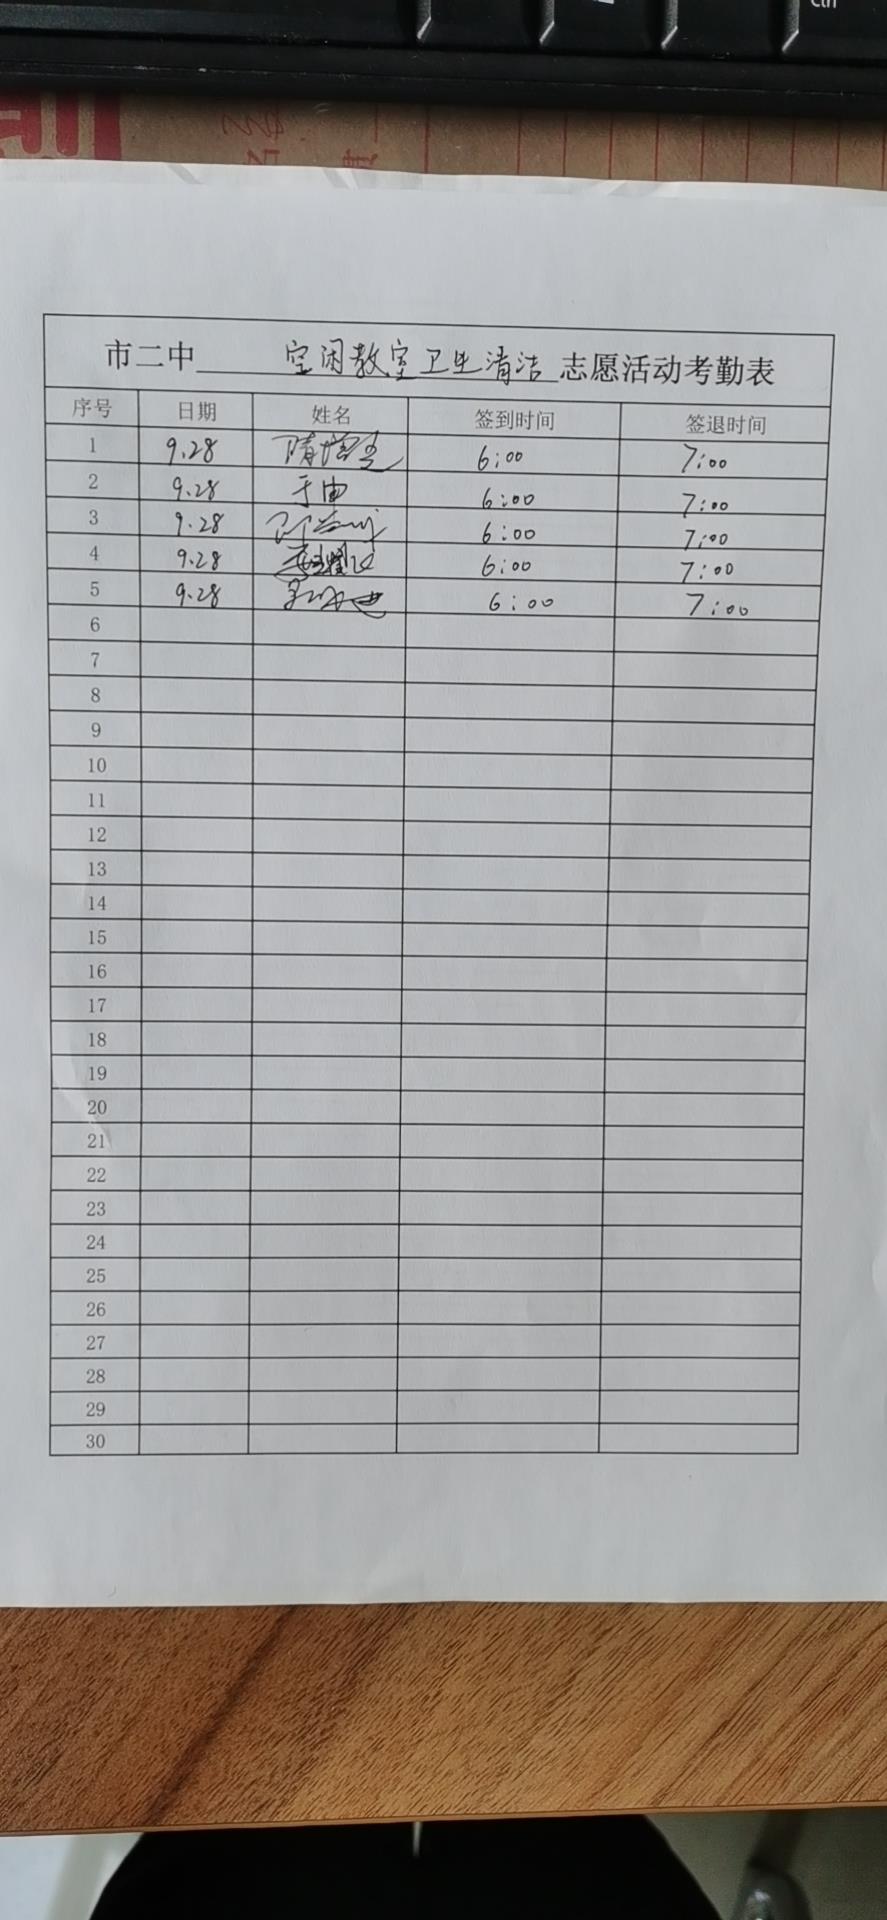 Ctrl
市二中 空闲教室卫生清洁 志愿活动考勤表
序号 日期 姓名 签到时间 签退时间
1 9.28 6:00 7:00
2 9.28 于由 6:00 7:00
3 9.28 6:00 7:00
4 9.28 6:00 7:00
5 9.28 6:00 7:00
6
7
8
9
10
11
12
13
14
15
16
17
18
19
20
21
22
23
24
25
26
27
28
29
30